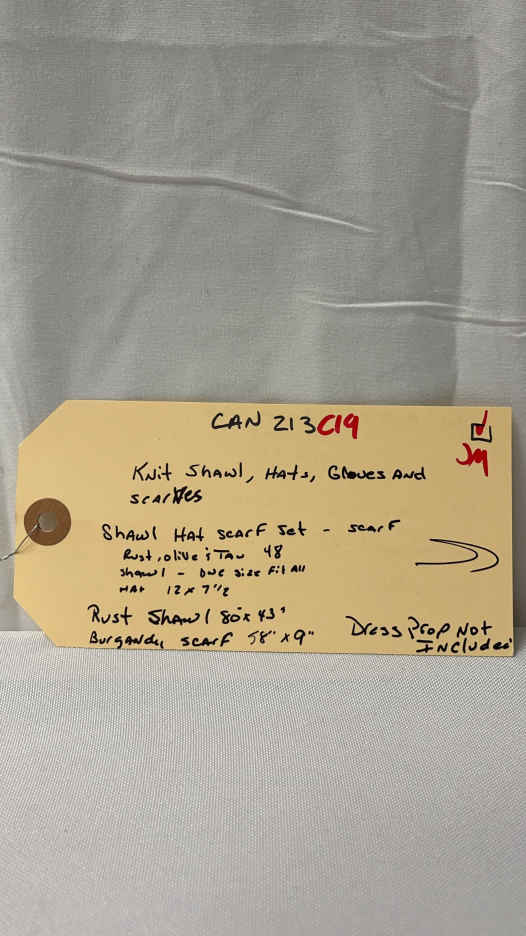 CAN 213 C19
JM
Knit Shawl, Hats, Gloves And
scarves
Shawl Hat scarf set - scarf
Rust, olive & Tan 48
shawl - one size Fit All
Hat 12 x 7 1/2
Rust Shawl 80" x 43"
Burgandy scarf 58" x 9"
Dress Prop Not
Included